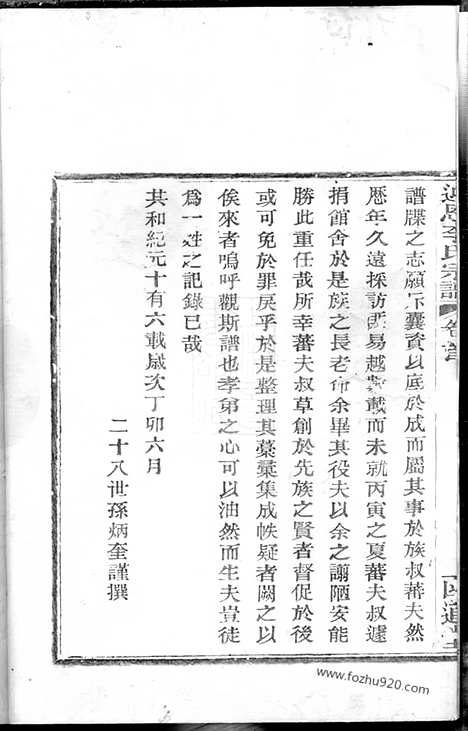 李氏宗譜
譜牒之志願斥囊資以底於成而屬其事於族叔蕃夫然
歷年久遠採訪匪易越數載而未就丙寅之夏蕃夫叔遽
捐館舍於是族之長老命余畢其役夫以余之謭陋安能
勝此重任哉所幸蕃夫叔草創於先族之賢者督促於後
或可免於罪戾乎於是整理其藁彙集成帙疑者闕之以
俟來者嗚呼觀斯譜也孝弟之心可以油然而生夫豈徒
爲一姓之記錄已哉
共和紀元十有六載歲次丁卯六月
二十八世孫炳奎謹撰
www.fozhu920.com